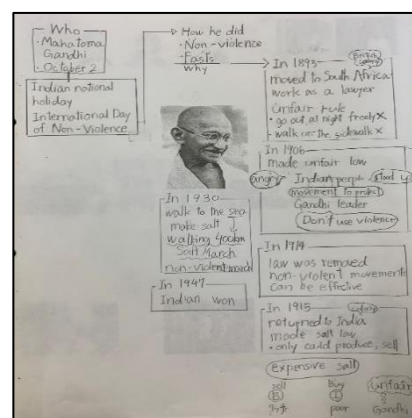 Who
・Mahatoma
Gandhi
・October 2
Indian national
holiday
International Day
of Non-Violence
How he did
・Non-violence
・Fasts
why
In 1893
moved to South Africa
work as a lawyer
unfair rule
・go out at night freely×
・walk on the sidewalk×
In 1906
made unfair law
angry Indian people stood up
movement to protect
Gandhi leader
Don't use violence
In 1914
law was removed
non-violent movements
can be effective
In 1915
returned to India
made salt law
・only could produce, sell
expensive salt
sell buy unfair
poor Gandhi
In 1930
walk to the sea
make salt
walking 400km
Salt March
non-violent march
In 1947
Indian won